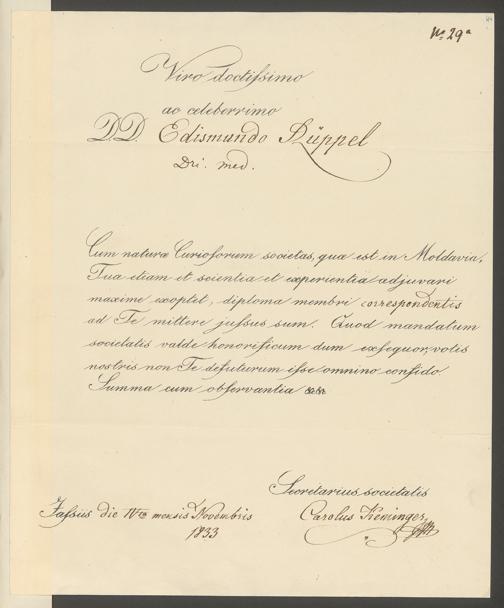 No 29a
Viro doctissimo
ac celeberrimo
DD. Edismundo Rüppel
Dri. med.
Cum naturæ Curiosorum societas, quæ est in Moldavia,
Tua etiam et scientia et experientia adjuvari
maxime exoptet, diploma membri correspondentis
ad Te mittere jussus sum. Quod mandatum
societatis valde honorificum dum exsequor, votis
nostris non Te defuturum isse omnino confido
Summa cum observantia &c &c
Secretarius societatis
Jassiis die IVto mensis Novembris
Carolus
1833